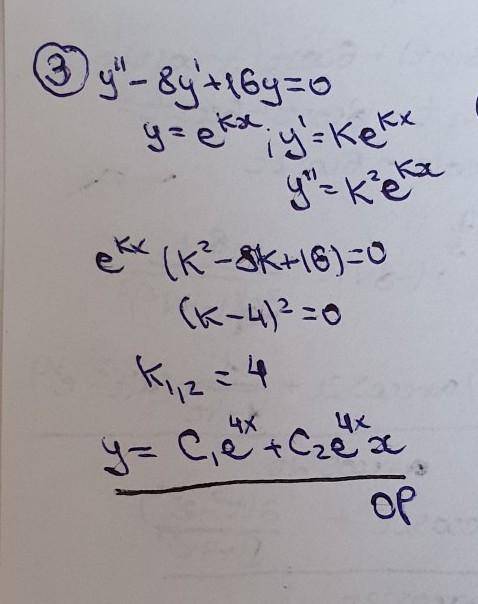 ③ y''-8y'+16y=0
y=e^{kx}; y'=ke^{kx}
y''=k²e^{kx}
e^{kx}(k²-8k+16)=0
(k-4)²=0
k_{1,2}=4
y=C₁e^{4x}+C₂e^{4x}x
OP